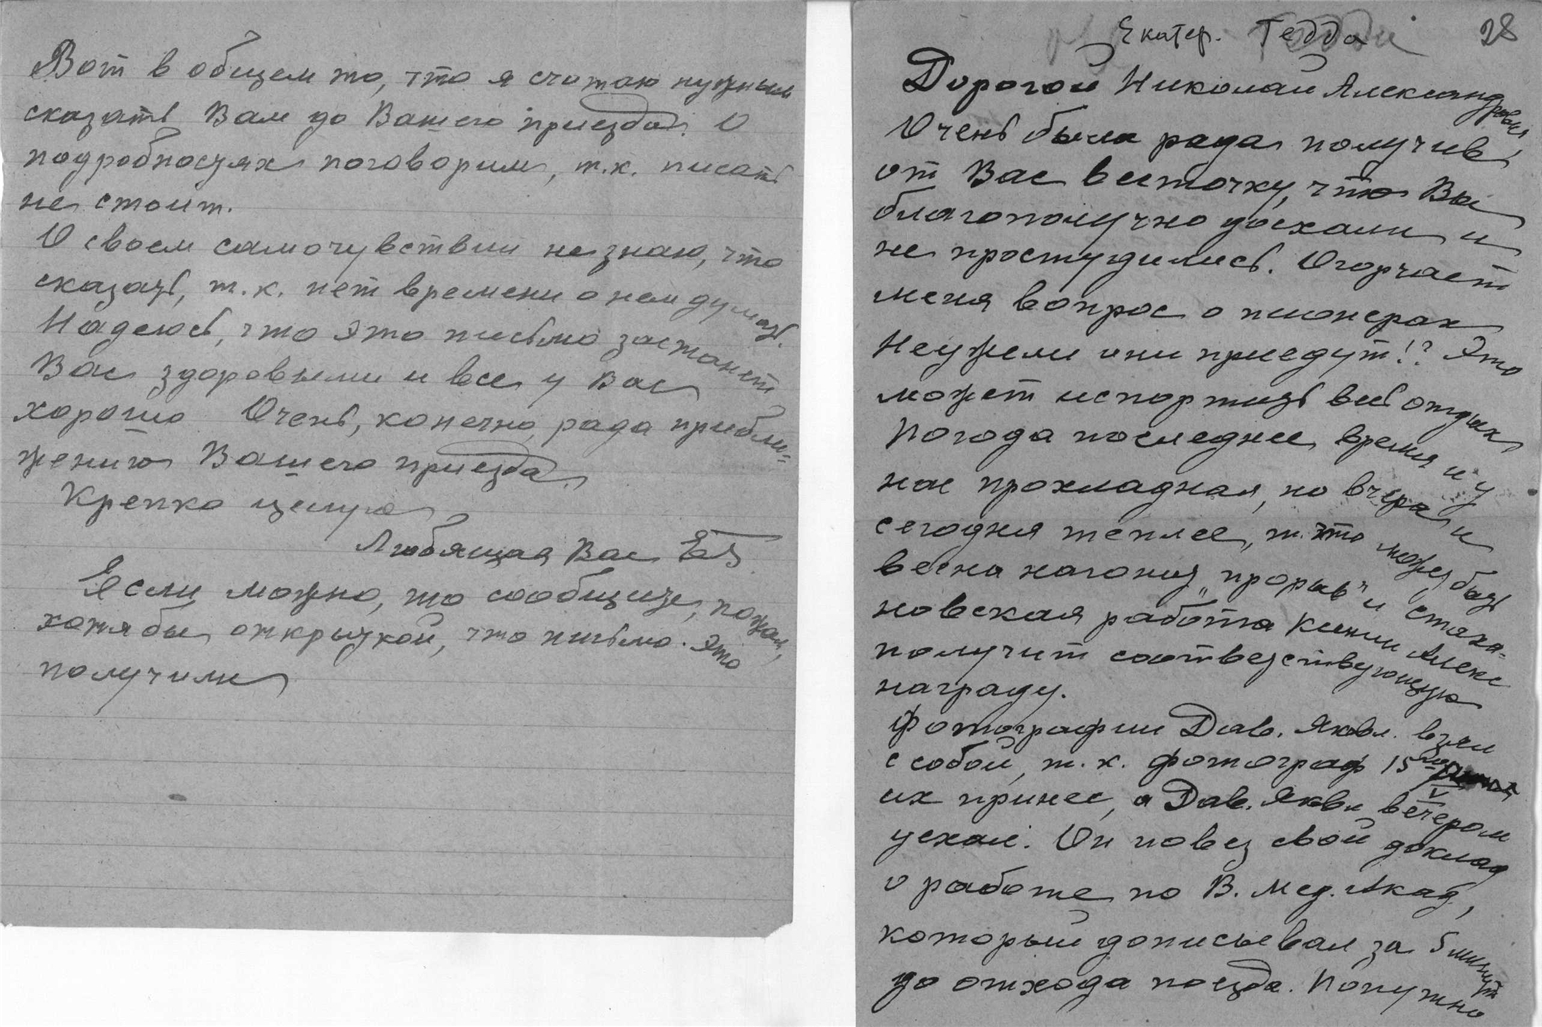 Вот в общем то, что я считаю нужным
сказать Вам до Вашего приезда. О
подробностях поговорим, т.к. писать
не стоит.
О своем самочувствии не знаю, что
сказать, т.к. нет времени о нем думать.
Надеюсь, что это письмо застанет
Вас здоровыми и все у Вас
хорошо Очень, конечно, рада прибли-
жению Вашего приезда.
Крепко целую
Любящая Вас
Если можно, то сообщите, пожал,
хотя бы открыткой, что письмо это
получили
Екатер. Гедда 28
Дорогой Николай Александрович,
Очень была рада получив
от Вас весточку, что Вы
благополучно доехали и
не простудились. Огорчает
меня вопрос о пионерах
Неужели они приедут!? Это
может испортить весь отдых
Погода последнее время и у
нас прохладная, но вчера и
сегодня теплее, т. что может быть
весна нагонит „прорыв" и стаха-
новская работа Ксении Алекс
получит соответствующую
награду.
Фотографии Дав. Яковл. взял
с собой, т.к. фотограф 15
V
их принес, а Дав. Яковл вечером
уехал. Он повез свой доклад
о работе по В. Мед. Акад,
который дописывал за 5 минут
до отхода поезда. Попутно